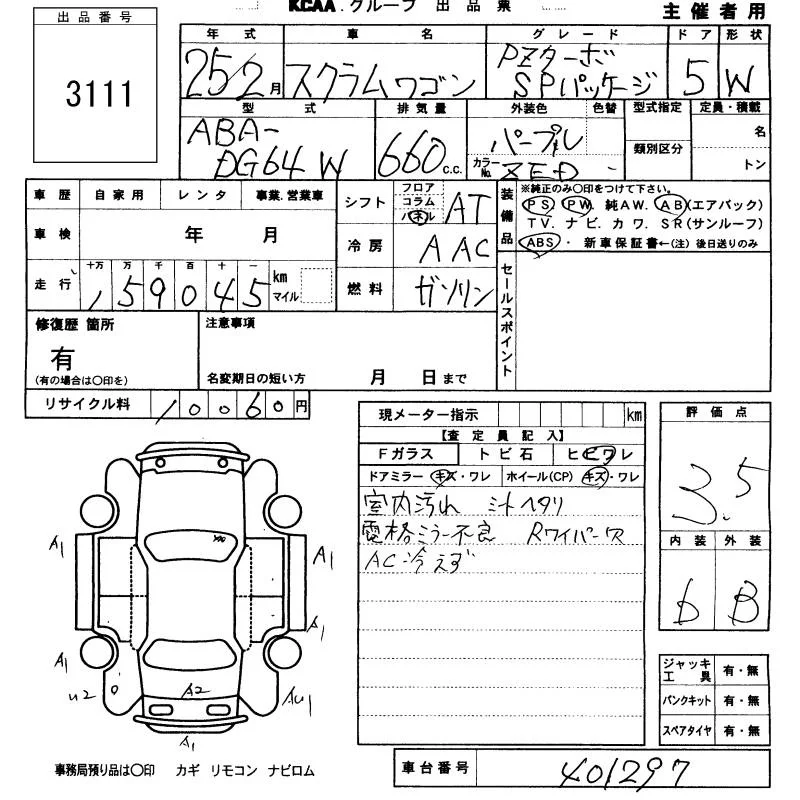 KCAA.グループ 出 品 票
主 催 者 用
出 品 番 号
3111
年 式
車 名
グ レ ー ド
ド ア
形 状
25/2月
スクラムワゴン
PZターボ
SPパッケージ
5
W
型 式
排 気 量
外装色
色替
型式指定
定員・積載
ABA-
DG64W
660 c.c.
パープル
カラーNo.
ZED
類別区分
名
トン
車 歴
自 家 用
レ ン タ
事業.営業車
車 検
年 月
走 行
十万 万 千 百 十 一
159045
km
マイル
シフト
フロア
コラム
パネル
AT
冷 房
AAC
燃 料
ガソリン
装備品
※純正のみ〇印をつけて下さい。
PS. PW. 純AW. AB(エアバック)
TV. ナビ. カワ. SR(サンルーフ)
ABS・ 新車保証書←(注) 後日送りのみ
セールスポイント
修復歴 箇所
有
(有の場合は〇印を)
注意事項
名変期日の短い方 月 日まで
リサイクル料
10060円
現メーター指示
km
【査 定 員 記 入】
Fガラス
トビ石
ヒビワレ
ドアミラー キズ・ワレ
ホイール(CP) キズ・ワレ
室内汚れ シートヘタリ
電格ミラー不良 Rワイパー欠
AC冷えず
評 価 点
3.5
内 装
外 装
D
B
ジャッキ
工 具
有・無
パンクキット
有・無
スペアタイヤ
有・無
A1
A1
A1
A1
U2
A2
A1
事務局預り品は〇印 カギ リモコン ナビロム
車台番号
401297